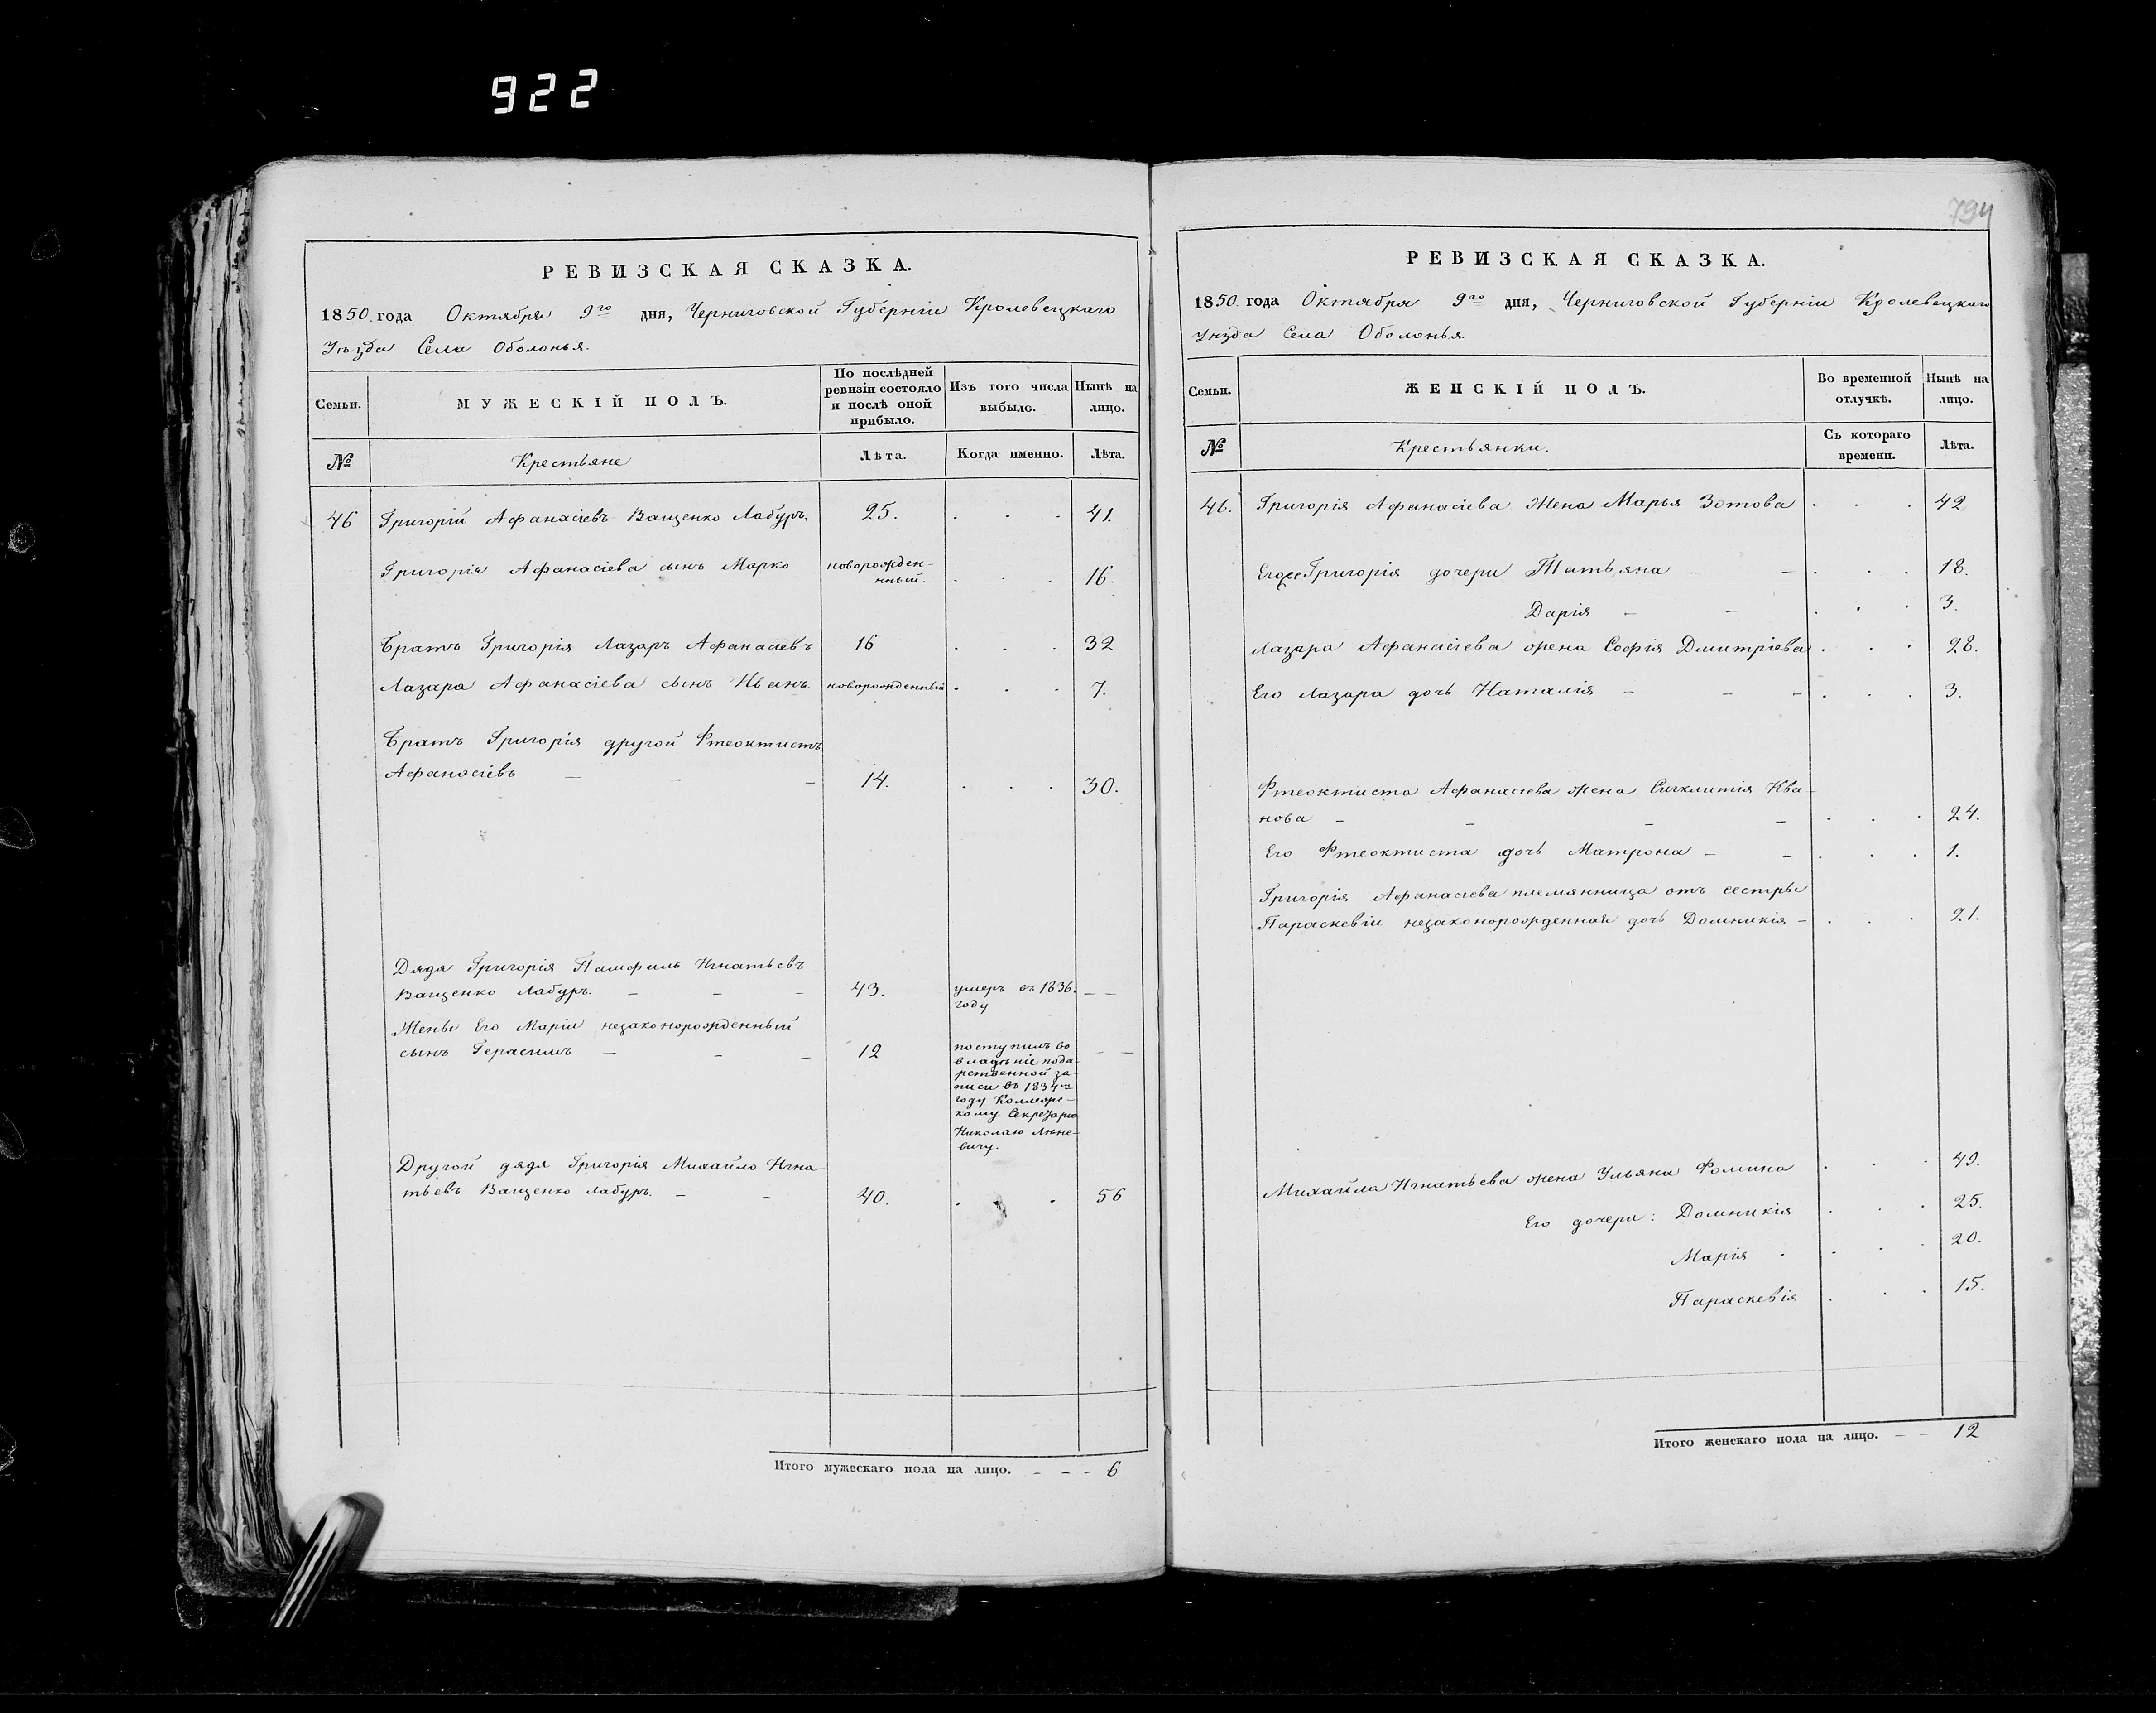 922
794
РЕВИЗСКАЯ СКАЗКА.
1850. года Октября 9го дня, Черниговской Губерніи Кролевецкаго
Уѣзда Села Оболонья.
Семьи.
МУЖЕСКІЙ ПОЛЪ.
По послѣдней
ревизіи состояло
и послѣ оной
прибыло.
Изъ того числа
выбыло.
Нынѣ на
лицо.
№
Крестьяне
Лѣта.
Когда именно.
Лѣта.
46 Григорій Афанасіевъ Ващенко Лабуръ. 25. . . . 41.
Григорія Афанасіева сынъ Марко новорожден-
нный. . . . 16.
Братъ Григорія Лазаръ Афанасіевъ 16 . . . 32
Лазара Афанасіева сынъ Иванъ. новорожденный . . . 7.
Братъ Григорія другой Фтеоктистъ
Афанасіевъ — — — 14. . . . 30.
Дядя Григорія Памфилъ Игнатьевъ
Ващенко Лабуръ. — — — 43. умеръ въ 1836. — —
году
Жены Его Маріи незаконорожденный
сынъ Герасимъ — — — 12 поступилъ во — —
владѣніе пода-
рственной за-
писи въ 1834мъ
году Коллеж-
кому Секретарю
Николаю Лѣне-
вичу.
Другой дядя Григорія Михайло Игна
тьевъ Ващенко Лабуръ. — — 40. . . . 56
Итого мужескаго пола на лицо. — — — 6
РЕВИЗСКАЯ СКАЗКА.
1850. года Октября. 9го дня, Черниговской Губерніи Кролевецкаго
Уѣзда Села Оболонья.
Семьи.
ЖЕНСКІЙ ПОЛЪ.
Во временной
отлучкѣ.
Нынѣ на
лицо.
№
Крестьянки.
Съ котораго
времени.
Лѣта.
46. Григорія Афанасіева Жена Марья Зотова . . . 42
Егоже Григорія дочери Татьяна — — . . . 18.
Дарія — — . . . 3.
Лазара Афанасіева жена Софія Дмитріева . . . 28.
Его Лазара дочь Наталія — — — . . . 3.
Фтеоктиста Афанасіева жена Сигклитія Ива-
нова — — — — . . . 24.
Его Фтеоктиста дочь Матрона — — . . . 1.
Григорія Афанасіева племянница отъ сестры
Параскевіи незаконорожденная дочь Домникія — . . . 21.
Михайла Игнатьева жена Ульяна Фомина . . . 49.
Его дочери: Домникія . . . 25.
Марія . . . . 20.
Параскевія . . . 15.
Итого женскаго пола на лицо. — — 12